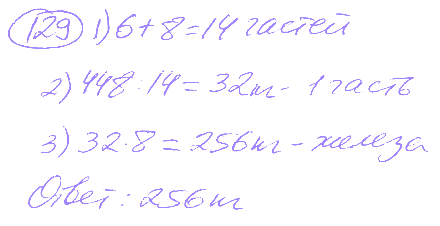 129 1) 6+8=14 частей
2) 448:14=32кг - 1 часть
3) 32·8=256кг - железа
Ответ: 256кг